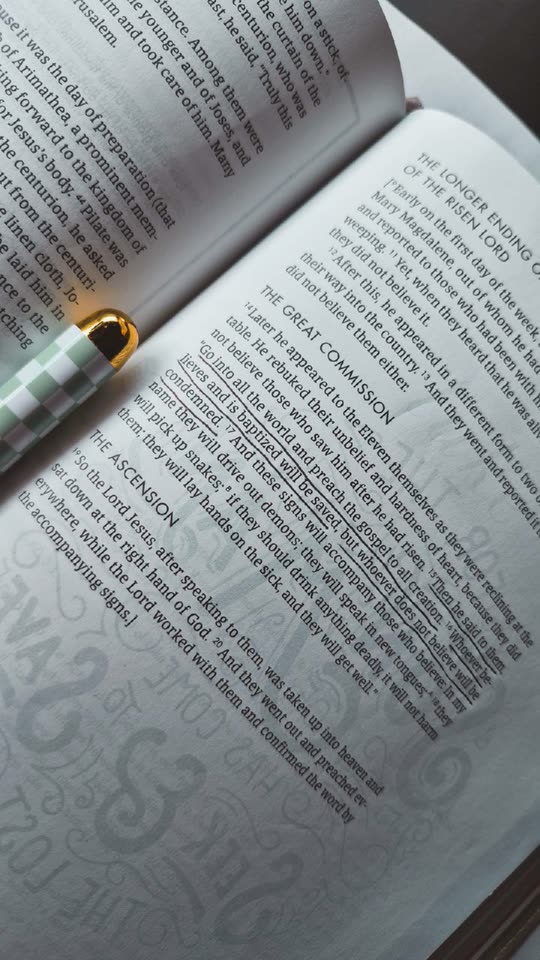 on a stick, of-
t him down."
the curtain of the
centurion, who was
ast, he said, "Truly this
istence. Among them were
he younger and of Joses, and
him and took care of him. Many
rusalem.
use it was the day of preparation (that
h of Arimathea, a prominent mem-
ing forward to the kingdom of
for Jesus's body. 44 Pilate was
the centurion, he asked
ut from the centuri-
e linen cloth. Jo-
e laid him in
nce to the
rching
THE LONGER ENDING O
OF THE RISEN LORD
[9 Early on the first day of the week,
Mary Magdalene, out of whom he had
and reported to those who had been with h
weeping. 11 Yet, when they heard that he was aliv
they did not believe it.
12 After this, he appeared in a different form to two
their way into the country. 13 And they went and reported it
did not believe them either.
THE GREAT COMMISSION
14 Later he appeared to the Eleven themselves as they were reclining at the
table. He rebuked their unbelief and hardness of heart, because they did
not believe those who saw him after he had risen. 15 Then he said to them,
"Go into all the world and preach the gospel to all creation. 16 Whoever be-
lieves and is baptized will be saved, but whoever does not believe will be
condemned. 17 And these signs will accompany those who believe: In my
name they will drive out demons; they will speak in new tongues; 18 they
will pick up snakes; if they should drink anything deadly, it will not harm
them; they will lay hands on the sick, and they will get well."
THE ASCENSION
19 So the Lord Jesus, after speaking to them, was taken up into heaven and
sat down at the right hand of God. 20 And they went out and preached ev-
erywhere, while the Lord worked with them and confirmed the word by
the accompanying signs.]